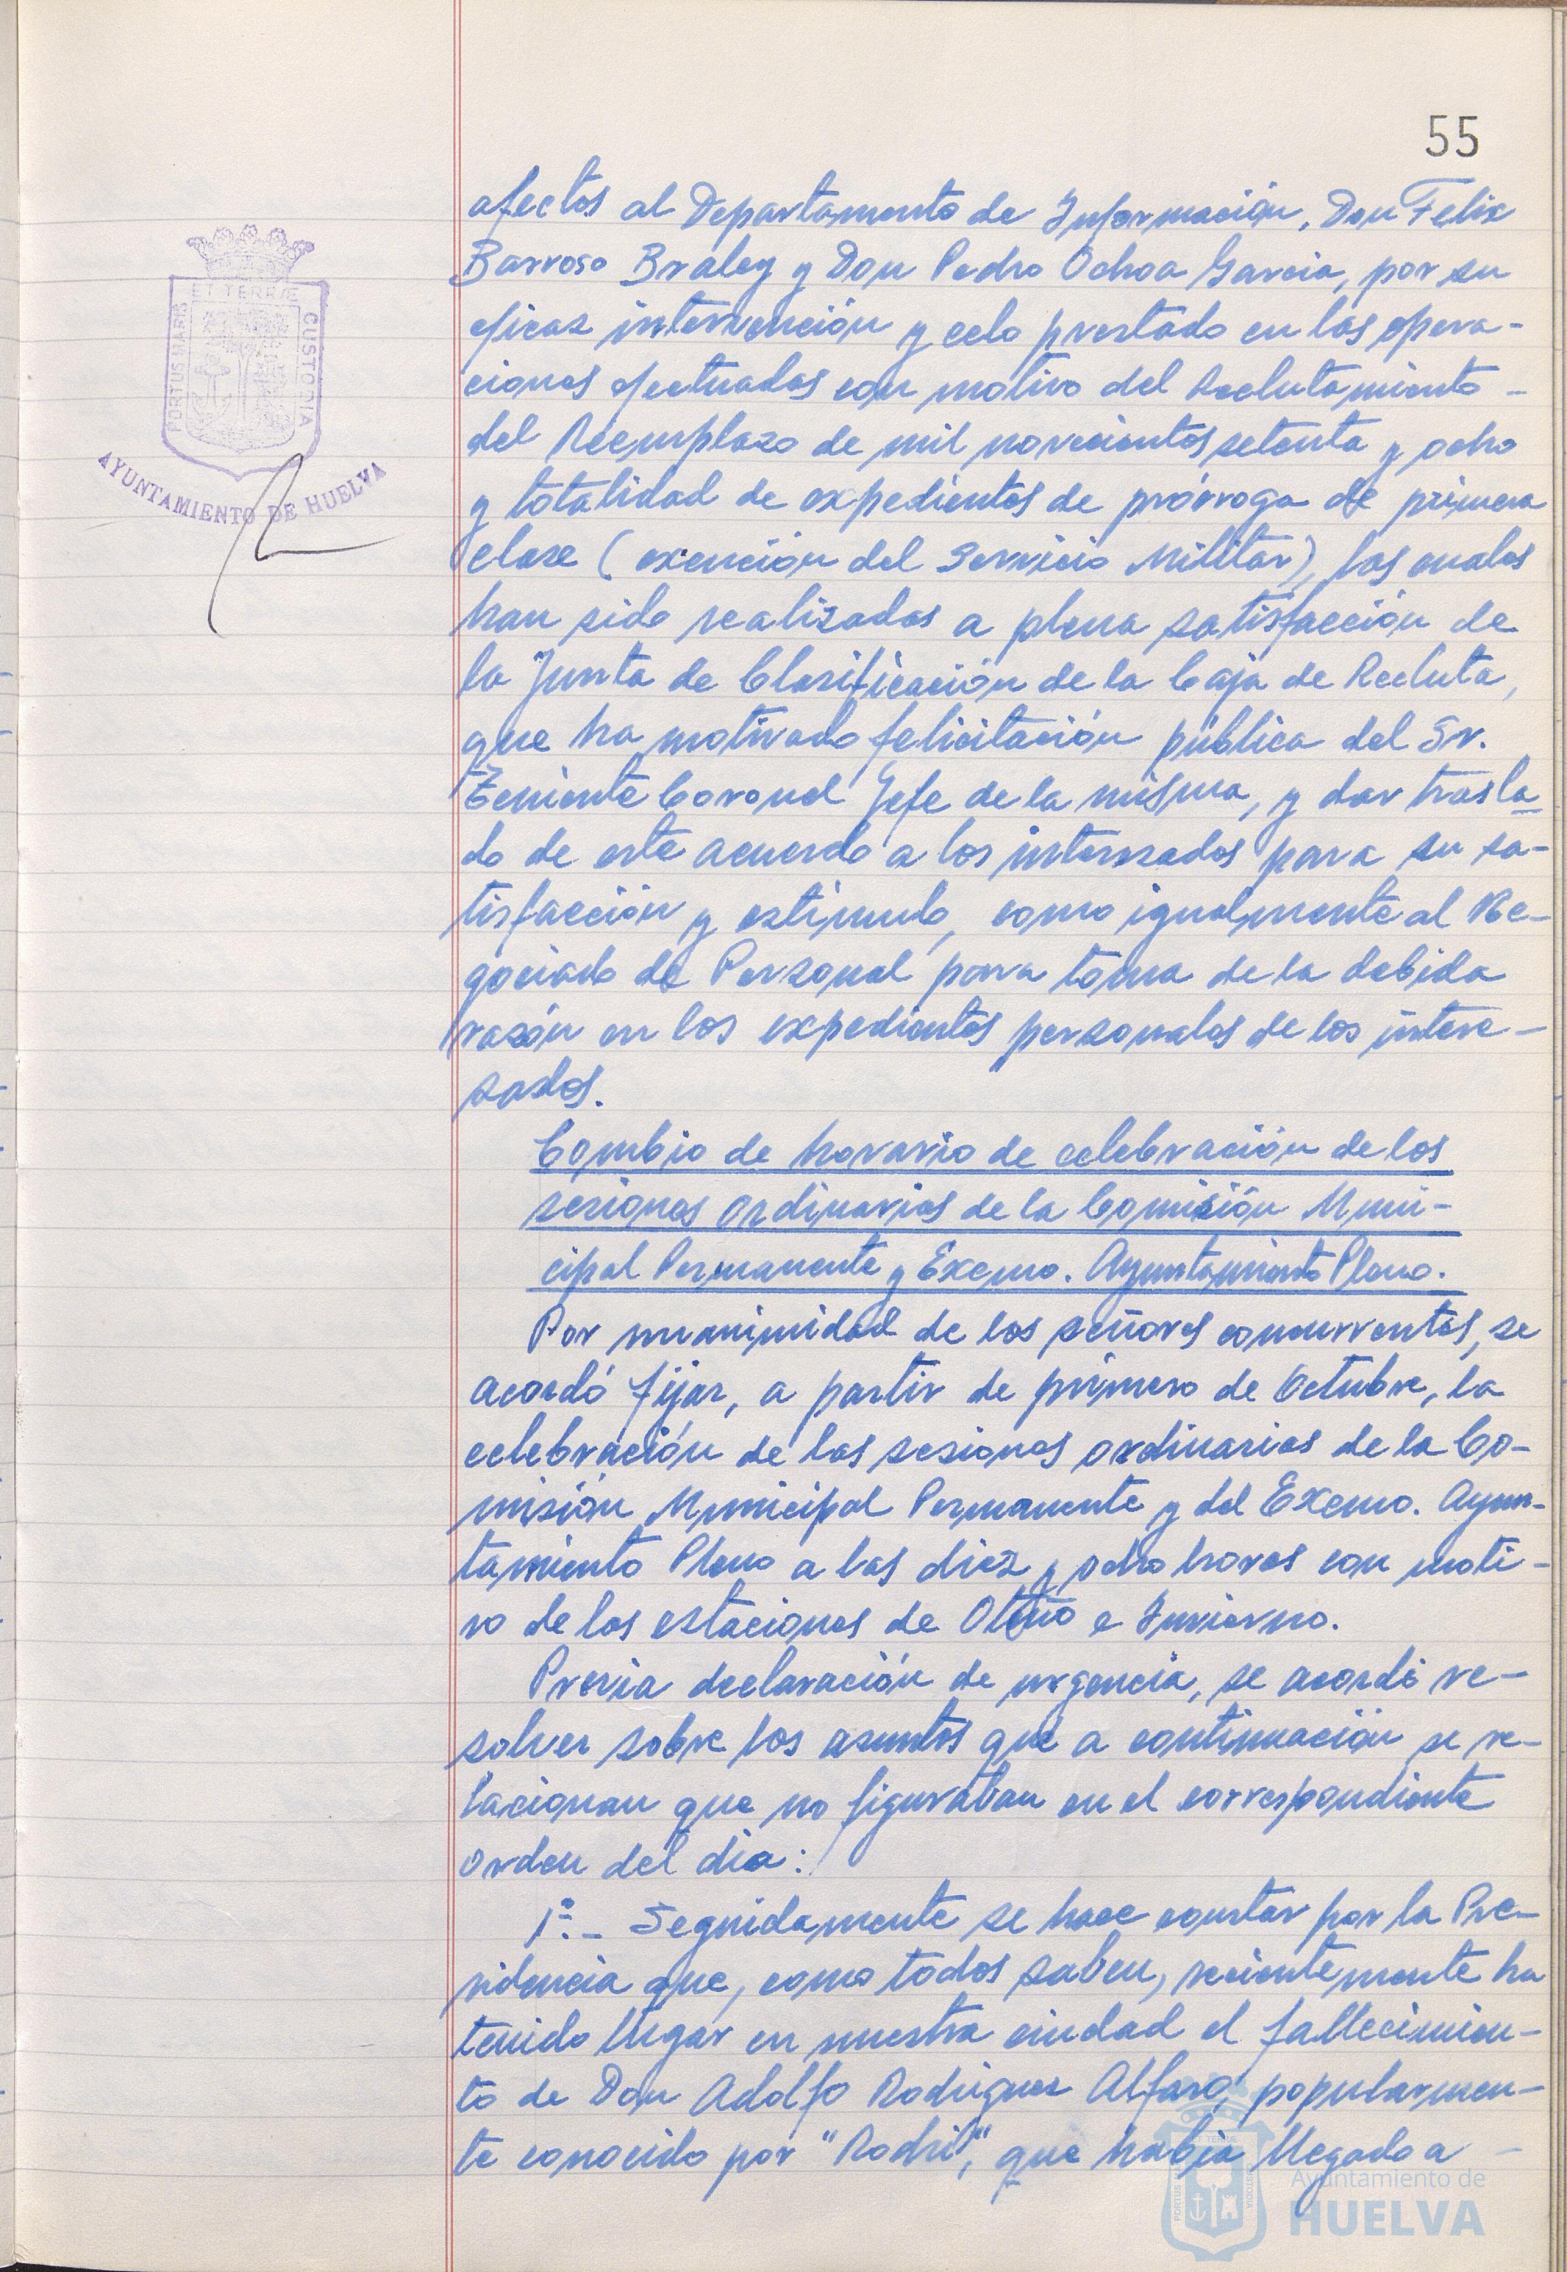 55
afectos al Departamento de Información, Don Felix
Barroso Braley y Don Pedro Ochoa Garcia, por su
eficaz intervención y celo prestado en las opera-
ciones efectuadas con motivo del reclutamiento -
del Reemplazo de mil novecientos setenta y ocho
y totalidad de expedientes de prórroga de primera
clase (exención del Servicio Militar), las cuales
han sido realizadas a plena satisfacción de
la Junta de Clasificación de la Caja de Recluta,
que ha motivado felicitación pública del Sr.
Teniente Coronel Jefe de la misma, y dar trasla
do de este acuerdo a los interesados para su sa-
tisfacción y estimulo, como igualmente al Ne-
gociado de Personal para toma de la debida
razón en los expedientes personales de los intere-
sados.
Cambio de horario de celebración de las
sesiones ordinarias de la Comisión Muni-
cipal Permanente y Excmo. Ayuntamiento Pleno.
Por unanimidad de los señores concurrentes, se
acordó fijar, a partir de primero de Octubre, la
celebración de las sesiones ordinarias de la Co-
misión Municipal Permanente y del Excmo. Ayun-
tamiento Pleno a las diez y ocho horas con moti-
vo de las estaciones de Otoño e Invierno.
Previa declaración de urgencia, se acordó re-
solver sobre los asuntos que a continuación se re-
lacionan que no figuraban en el correspondiente
orden del dia:
1º.- Seguidamente se hace constar por la Pre-
sidencia que, como todos saben, recientemente ha
tenido lugar en nuestra ciudad el fallecimien-
to de Don Adolfo Rodriguez Alfaro, popularmen-
te conocido por "Rodri", que habia llegado a -
PORTUS MARIS
ET TERRÆ
CUSTODIA
AYUNTAMIENTO DE HUELVA
Ayuntamiento de
HUELVA